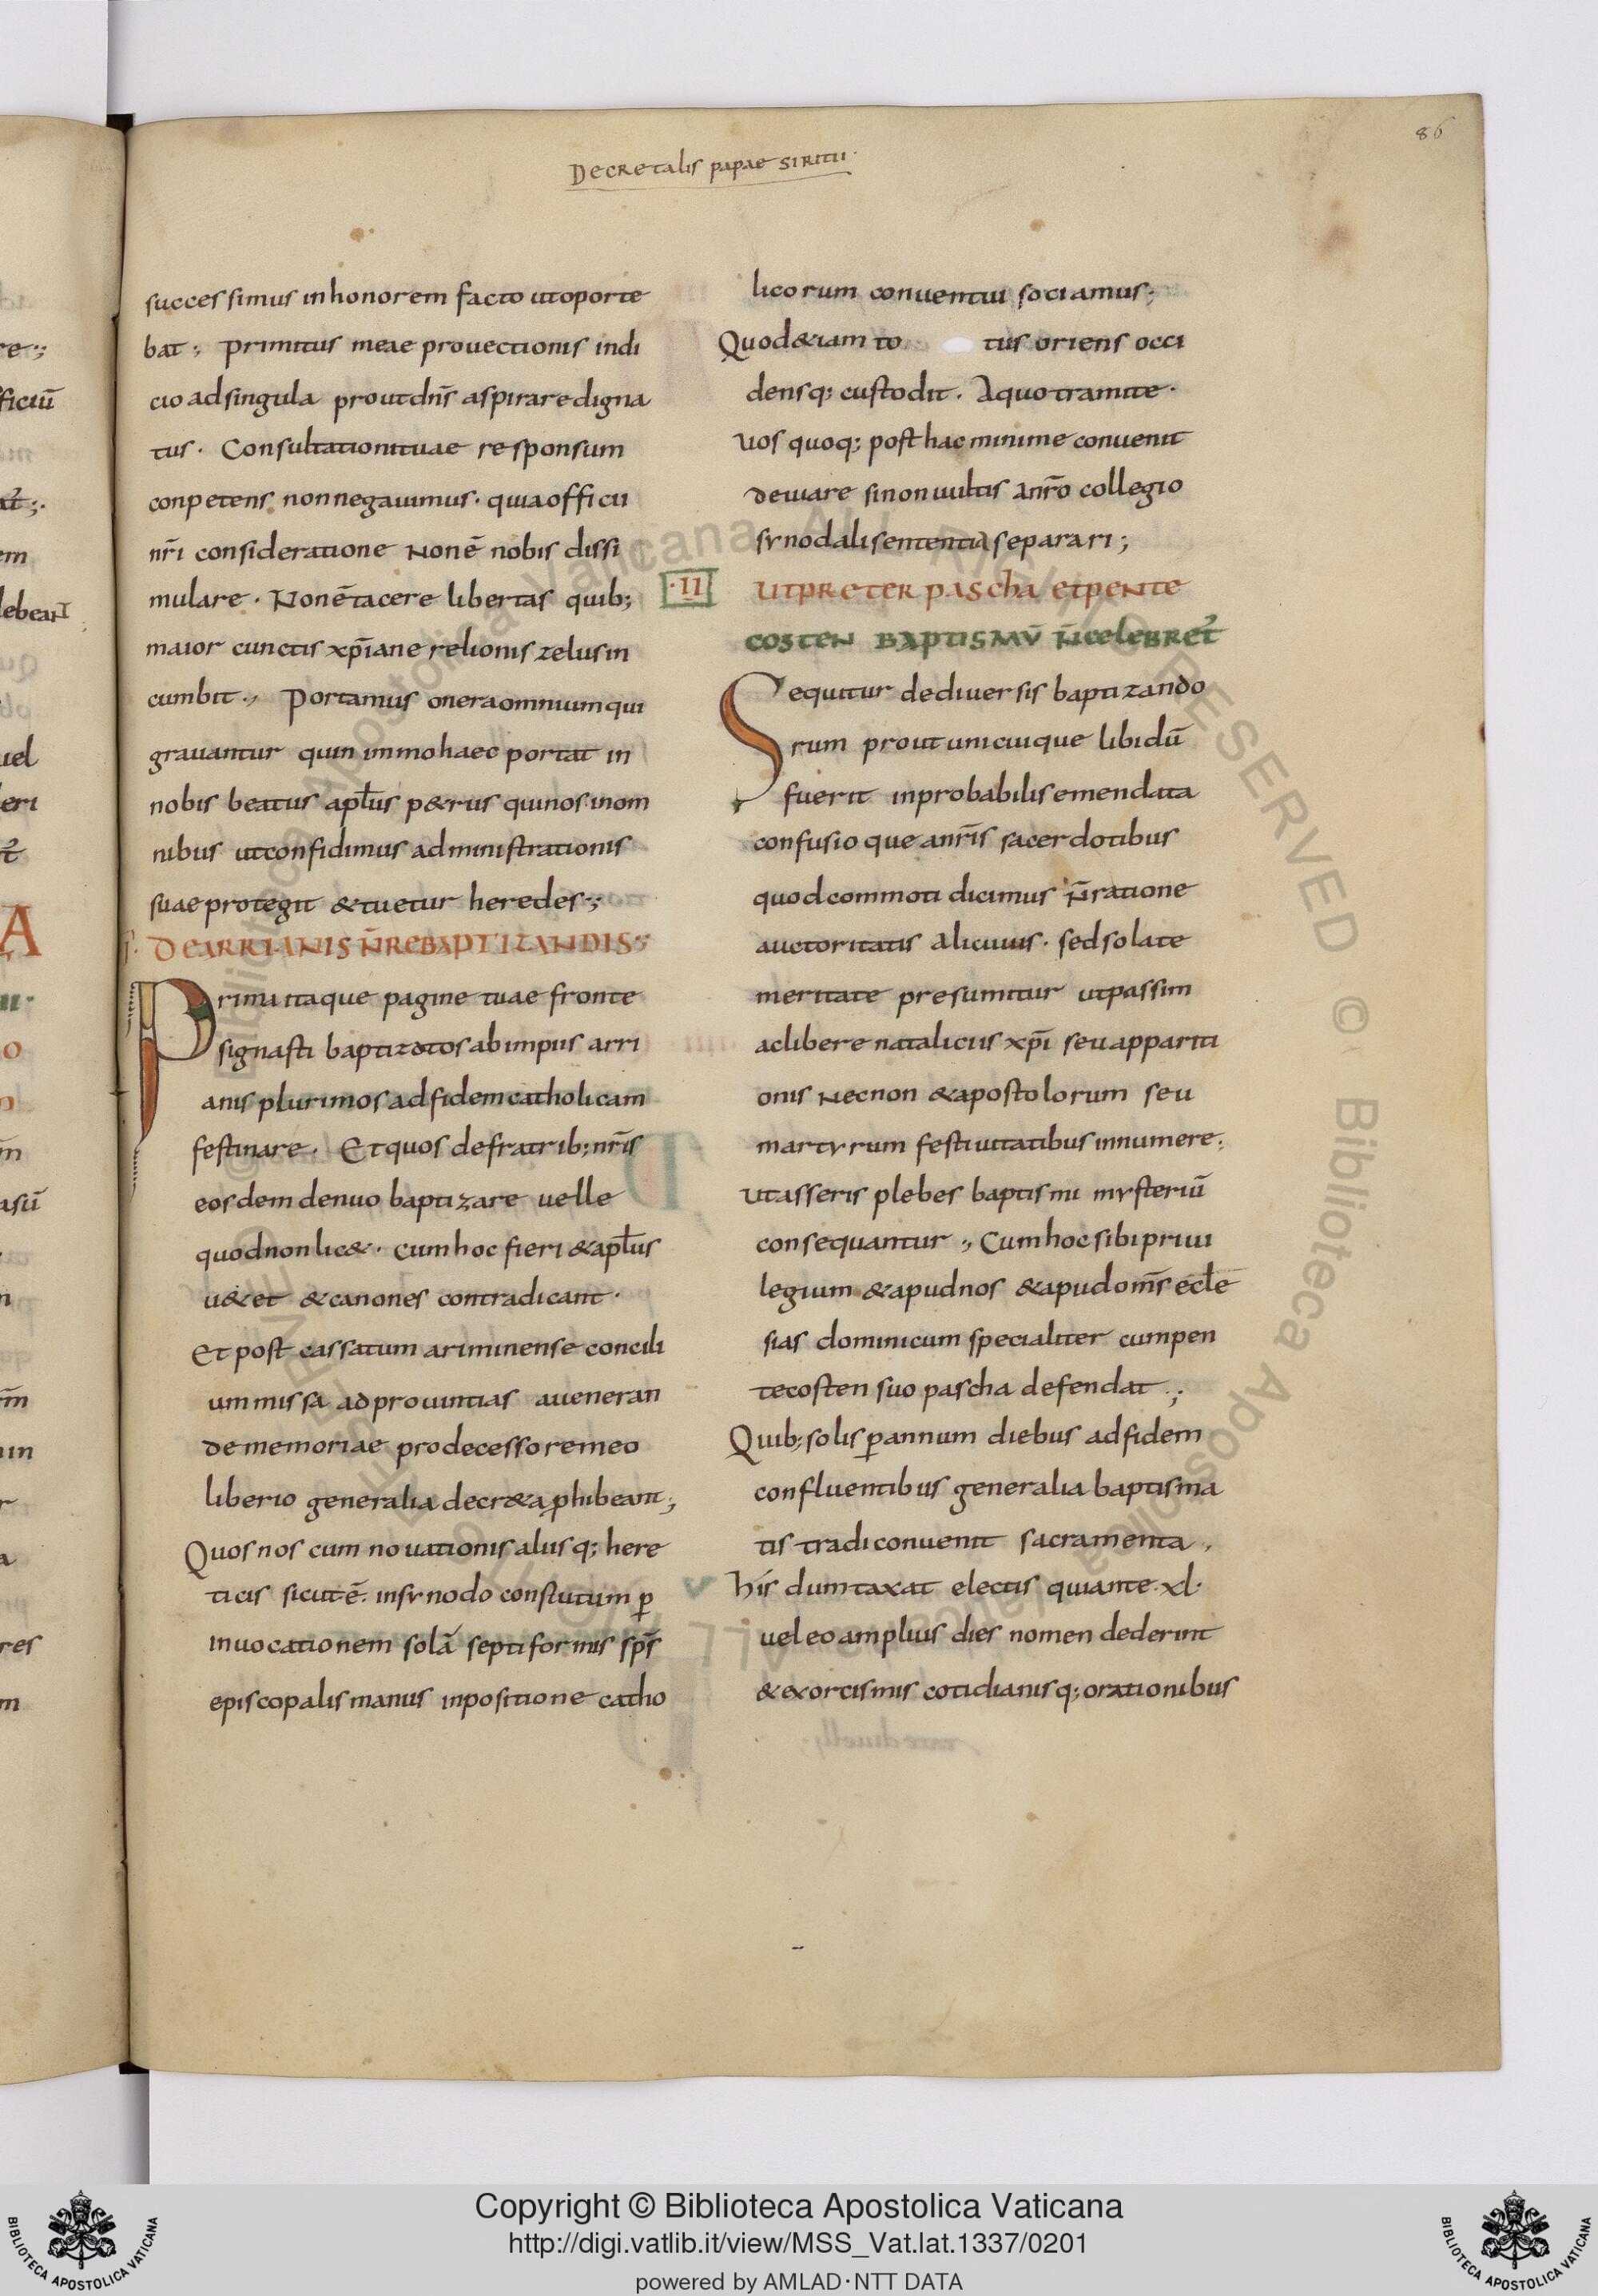 86
Decretalis papae siricii
successimus inhonorem facto utoporte
bat; primitus meae prouectionis indi
cio adsingula proutdn̄s aspirare digna
tus. Consultationituae responsum
conpetens nonnegauimus. quiaofficii
nr̄i consideratione Nonē nobis dissi
mulare. Nonētacere libertas quib;
maior cunctis xp̄iane relionis zelusin
cumbit; Portamus oneraomniumqui
grauantur quin immohaec portat in
nobis beatus apłus p&rus quinosinom
nibus utconfidimus administrationis
suaeprotegit &tuetur heredes;
I. DEARRIANIS N̄REBAPTIZANDIS;
Prima itaque pagine tuae fronte
signasti baptizatos abimpiis arri
anis plurimos adfidemcatholicam
festinare. Etquos defratrib; nr̄is
eosdem denuo baptizare uelle
quodnonlic&. cumhoc fieri &apłus
u&et &canones contradicant.
Et post cassatum ariminense concili
um missa ad prouintias aueneran
de memoriae prodecessoremeo
liberio generalia decr&a ꝓhibeant;
Quos nos cum nouationisaliisq; here
ticis sicutē. insynodo constitutum ꝑ
inuocationem solā septiformis sp̄s
episcopalismanus inpositione catho
licorum conuentui sociamus;
Quod&iam to tus oriens occi
densq; custodit. Aquotramite.
uos quoq; posthac minime conuenit
deuiare sinonuultis anr̄o collegio
synodalisententia separari;
.II UTPRETER PASCHA ETPENTE
COSTEN BAPTISMŪ N̄CELEBRET
Sequitur dediuersis baptizando
rum prout unicuique libidū
fuerit inprobabilisemendata
confusio que anr̄is sacerdotibus
quodcommoti dicimus N̄ratione
auctoritatis alicuius. sedsolate
meritate presumitur utpassim
aclibere nataliciis xp̄i seuappariti
onis Necnon &apostolorum seu
martyrum festiuitatibus innumere;
Utasseris plebes baptismi mysteriū
consequantur; Cumhocsibipriui
legium &apudnos &apudom̄s ecłe
sias dominicum specialiter cumpen
tecosten suo pascha defendat;
Quib; solis ꝑannum diebus adfidem
confluentibus generalia baptisma
tis tradi conuenit sacramenta,
his dumtaxat electis quiante. xl.
ueleoamplius dies nomen dederint
&exorcismis cotidianisq; orationibus
Copyright © Biblioteca Apostolica Vaticana
http://digi.vatlib.it/view/MSS_Vat.lat.1337/0201
powered by AMLAD·NTT DATA